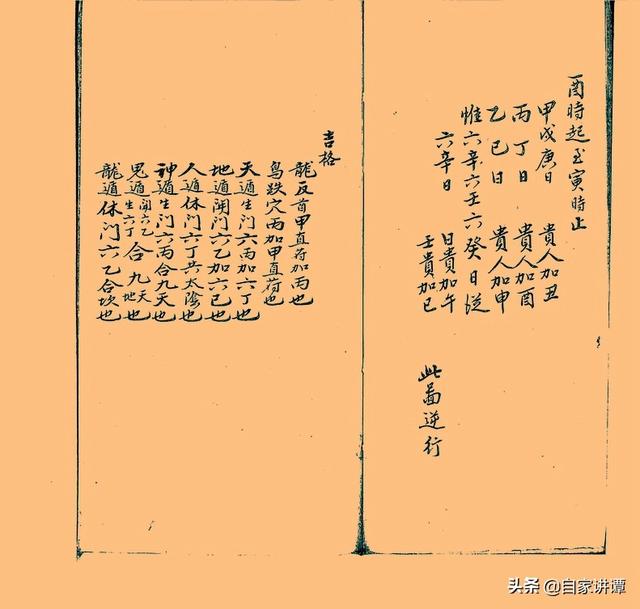 酉時起至寅時止
甲戊庚日 貴人加丑
丙丁日 貴人加酉
乙己日 貴人加申
惟六辛六壬六癸日逆
六辛日 日貴加午
壬貴加巳
此圖逆行
吉格
龍反首甲直符加丙也
鳥跌穴丙加甲直符也
天遁生门六丙加六丁也
地遁開门六乙加六己也
人遁休门六丁共太陰也
神遁生门六丙合九天也
鬼遁開六乙生六丁合九天地也
龍遁休门六乙合坎也
头条 @自家讲谭